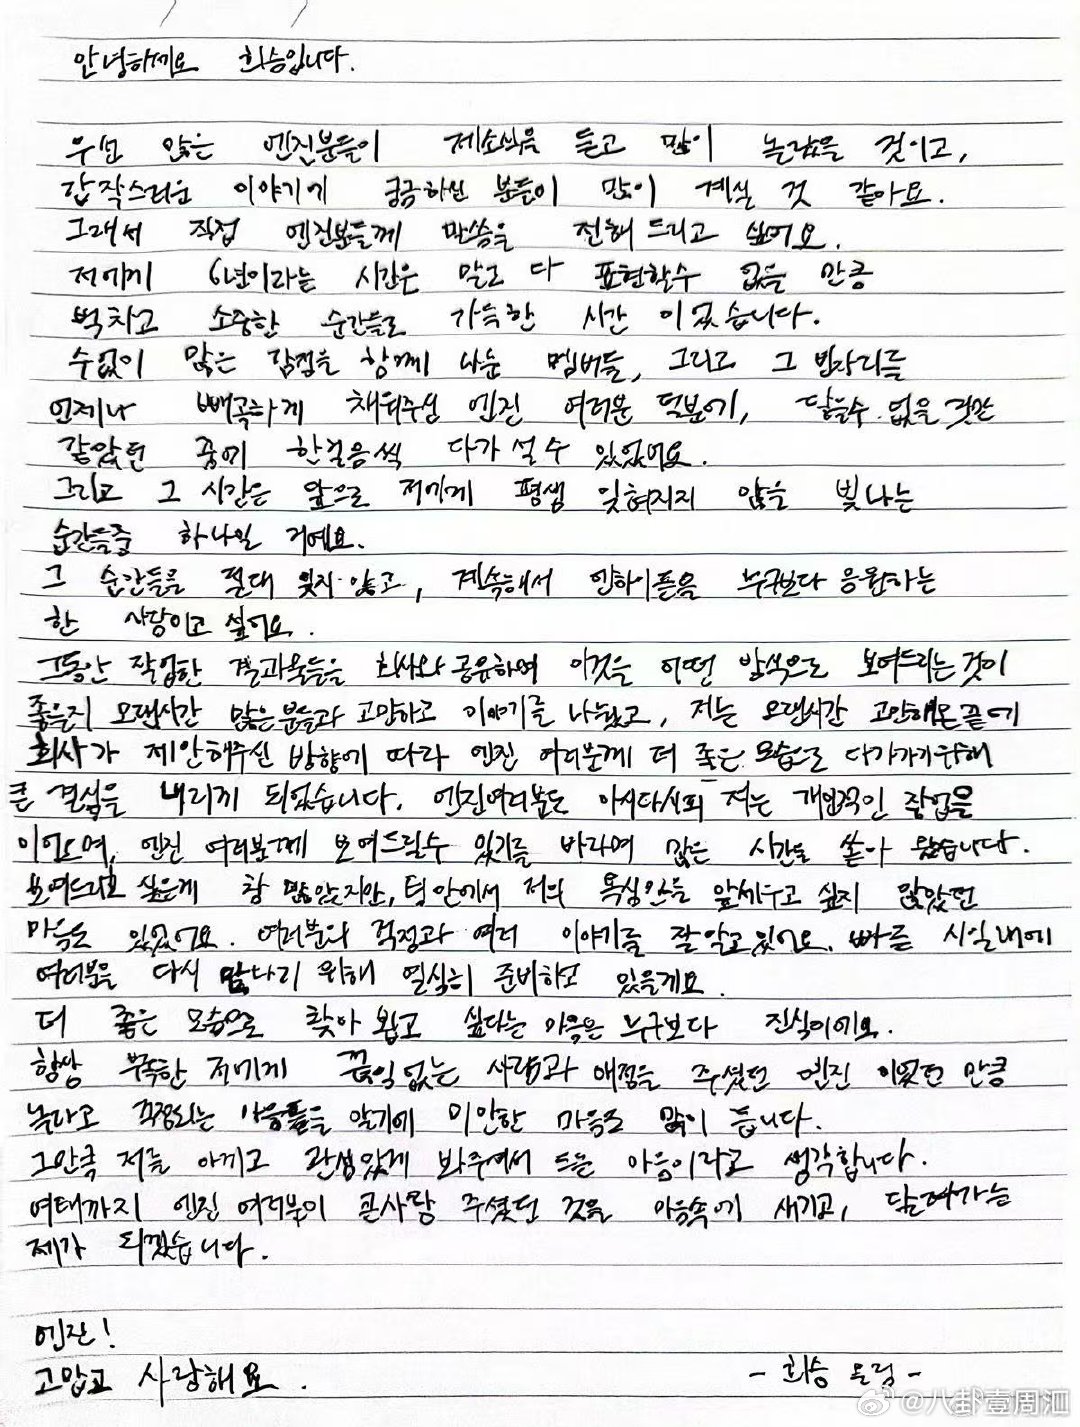 안녕하세요 희승입니다.
우선 많은 엔진분들이 제소식을 듣고 많이 놀랐을 것이고,
갑작스러운 이야기에 궁금하신 분들이 많이 계실 것 같아요.
그래서 직접 엔진분들께 말씀을 전해 드리고 싶어요.
저에게 6년이라는 시간은 말로 다 표현할수 없을 만큼
벅차고 소중한 순간들로 가득한 시간 이었습니다.
수없이 많은 감정을 함께 나눈 멤버들, 그리고 그 빈자리를
언제나 빼곡하게 채워주신 엔진 여러분 덕분에, 닿을수 없을 것만
같았던 꿈에 한걸음씩 다가 설 수 있었어요.
그리고 그 시간은 앞으로 저에게 평생 잊혀지지 않을 빛나는
순간들중 하나일 거예요.
그 순간들을 절대 잊지 않고, 계속해서 엔하이픈을 누구보다 응원하는
한 사람이고 싶어요.
그동안 작업한 결과물들을 회사와 공유하며 이것을 어떤 방식으로 보여드리는 것이
좋을지 오랜시간 많은분들과 고민하고 이야기를 나눴고, 저는 오랜시간 고민해온 끝에
회사가 제안해주신 방향에 따라 엔진 여러분께 더 좋은 모습으로 다가가기위해
큰 결심을 내리게 되었습니다. 엔진여러분도 아시다시피 저는 개인적인 작업을
이어오며, 엔진 여러분께 보여드릴수 있기를 바라며 많은 시간을 쏟아 왔습니다.
보여드리고 싶은게 참 많았지만, 팀 안에서 저의 욕심만을 앞세우고 싶지 않았던
마음도 있었어요. 여러분의 걱정과 여러 이야기를 잘 알고 있어요. 빠른 시일내에
여러분을 다시 만나기 위해 열심히 준비하고 있을게요.
더 좋은 모습으로 찾아 뵙고 싶다는 마음은 누구보다 진심이에요.
항상 부족한 저에게 끊임없는 사랑과 애정을 주셨던 엔진 이었던 만큼
놀라고 걱정되는 마음들을 알기에 미안한 마음도 많이 듭니다.
그만큼 저를 아끼고 관심있게 봐주셔서 드는 마음이라고 생각합니다.
여태까지 엔진 여러분이 큰사랑 주셨던 것을 마음속에 새기고, 달려가는
제가 되겠습니다.
엔진!
고맙고 사랑해요.
- 희승 올림 -
@八卦壹周洄